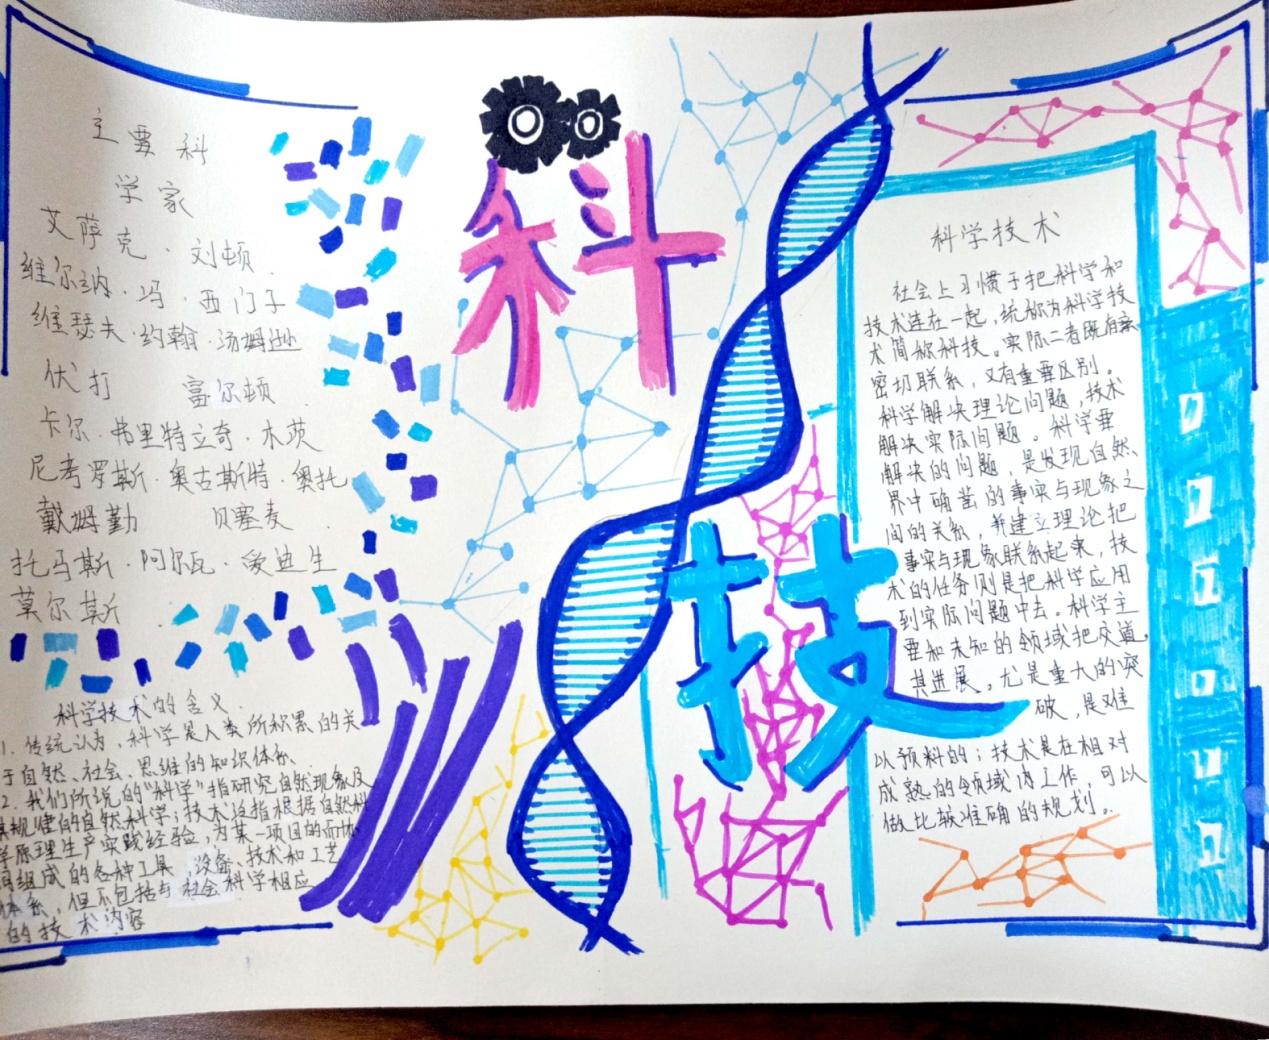 主要科
学家
艾萨克·刘顿
维尔纳·冯·西门子
维瑟夫·约翰·汤姆逊
伏打 富尔顿
卡尔·弗里特立奇·本茨
尼考罗斯·奥古斯特·奥托
戴姆勤 贝塞麦
托马斯·阿尔瓦·爱迪生
莫尔斯
科学技术的含义
1. 传统认为,科学是人类所积累的关
于自然、社会、思维的知识体系.
2. 我们所说的“科学”指研究自然现象及
其规律的自然科学;技术这指根据自然科
学原理生产实践经验,为某一项目的而协
同组成的各种工具,设备、技术和工艺
体系,但不包括与社会科学相应
的技术内容
科
技
科学技术
社会上习惯于把科学和
技术连在一起,统称为科学技
术简称科技。实际二者既有
密切联系,又有重要区别。
科学解决理论问题,技术
解决实际问题。科学要
解决的问题,是发现自然
界中确凿的事实与现象之
间的关系,并建立理论把
事实与现象联系起来,技
术的任务则是把科学应用
到实际问题中去。科学主
要和未知的领域把交道,
其进展,尤是重大的突
破,是难
以预料的;技术是在相对
成熟的领域内工作,可以
做比较准确的规划。